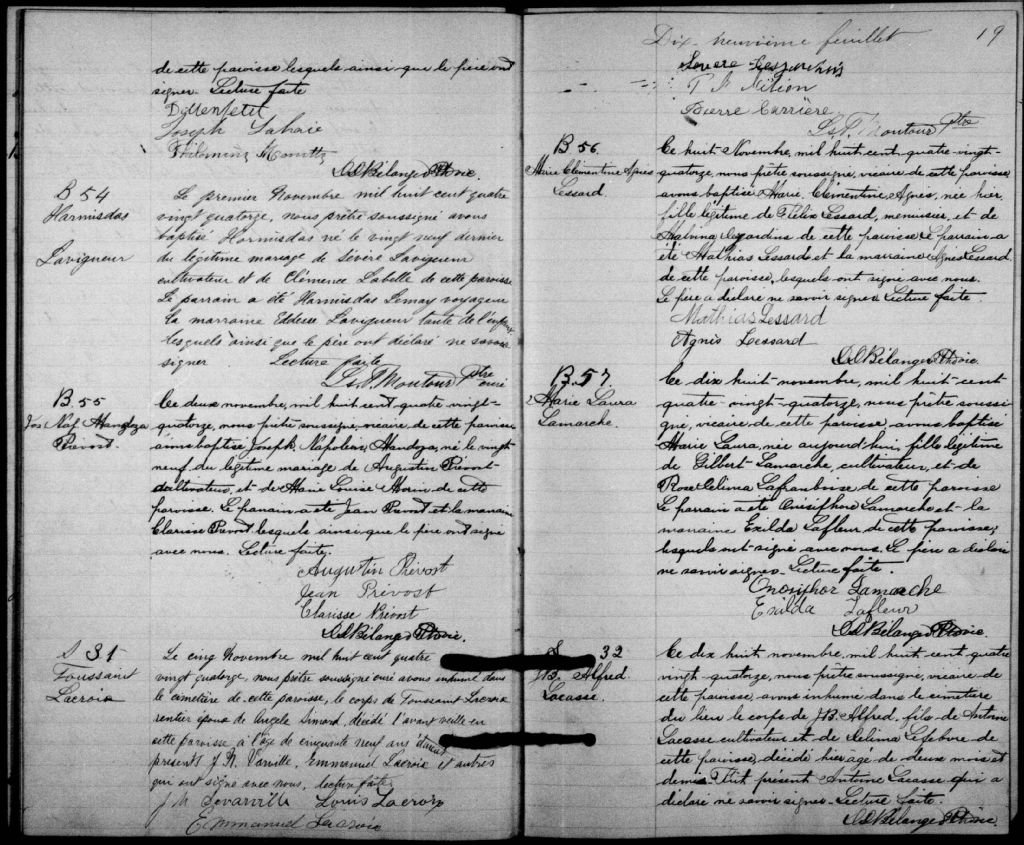 de cette paroisse lesquels ainsi que le père ont
signer. Lecture faite
Joseph Labrie
Philomène
J.D. Bélanger Ptre Vic.
B 54
Harmisdas
Lavigueur
Le premier Novembre mil huit cent quatre
vingt quatorze, nous prêtre soussigné avons
baptisé Harmisdas né le vingt neuf dernier
du légitime mariage de Sévère Lavigueur
cultivateur et de Clémence Labelle de cette paroisse
Le parrain a été Harmisdas Lemay voyageur
la marraine Eddesse Lavigueur tante de l'enfant
lesquels ainsi que le père ont déclaré ne savoir
signer. Lecture faite
Ls P. Moutour Ptre curé
B 55
Jos Nap. Mandoza
Prévost.
Ce deux novembre, mil huit cent quatre vingt-
quatorze, nous prêtre soussigné, vicaire de cette paroisse
avons baptisé Joseph, Napoléon, Mandoza, né le vingt-
neuf du légitime mariage de Augustin Prévost
cultivateur, et de Marie Louise Morin de cette
paroisse. Le parrain a été Jean Prévost et la marraine
Clarisse Prévost lesquels ainsi que le père ont signé
avec nous. Lecture faite.
Augustin Prévost
Jean Prévost
Clarisse Prévost
J.D. Bélanger Ptre Vic.
S 31
Toussaint
Lacroix
Le cinq Novembre mil huit cent quatre
vingt quatorze, nous prêtre soussigné curé avons inhumé dans
le cimetière de cette paroisse, le corps de Toussaint Lacroix
rentier époux de Angèle Simard, décédé l'avant veille en
cette paroisse à l'âge de cinquante neuf ans étaient
présents J. N. Varville, Emmanuel Lacroix et autres
qui ont signé avec nous, lecture faite
Louis Lacroix
Emmanuel Lacroix
Dix-neuvième feuillet 19
Sévère Desjardins
Pierre Carrière
Ls P. Moutour Ptre
B 56
Marie Clémentine Agnès
Lessard
Ce huit Novembre, mil huit-cent-quatre-vingt-
quatorze, nous prêtre soussigné, vicaire de cette paroisse
avons baptisé Marie, Clémentine, Agnès, née hier,
fille légitime de Félix Lessard, menuisier, et de
Malvina Desjardins de cette paroisse. Le parrain a
été Mathias Lessard et la marraine Agnès Lessard
de cette paroisse, lesquels ont signé avec nous.
Le père a déclaré ne savoir signer. Lecture faite.
Mathias Lessard
Agnès Lessard
J.D. Bélanger Ptre Vic.
B. 57.
Marie Laura
Lamarche.
Ce dix huit-novembre, mil huit-cent-
quatre-vingt-quatorze, nous prêtre soussi-
gné, vicaire de cette paroisse, avons baptisé
Marie Laura, née aujourd'hui, fille légitime
de Gilbert Lamarche, cultivateur, et de
Rose Célina Laframboise de cette paroisse
Le parrain a été Onésiphore Lamarche et la
marraine Exilda Lafleur de cette paroisse,
lesquels ont signé avec nous. Le père a déclaré
ne savoir signer. Lecture faite.
Onésiphor Lamarche
Exilda Lafleur
J.D. Bélanger Ptre Vic.
S 32
JB. Alfred
Lacasse.
Ce dix huit novembre, mil huit-cent-quatre
vingt-quatorze, nous prêtre soussigné, vicaire de
cette paroisse, avons inhumé dans le cimetière
du lieu le corps de JB. Alfred, fils de Antoine
Lacasse cultivateur et de Célina Lefebvre de
cette paroisse, décédé hier âgé de deux mois et
demi. Etait présent Antoine Lacasse qui a
déclaré ne savoir signer. Lecture faite.
J.D. Bélanger Ptre Vic.